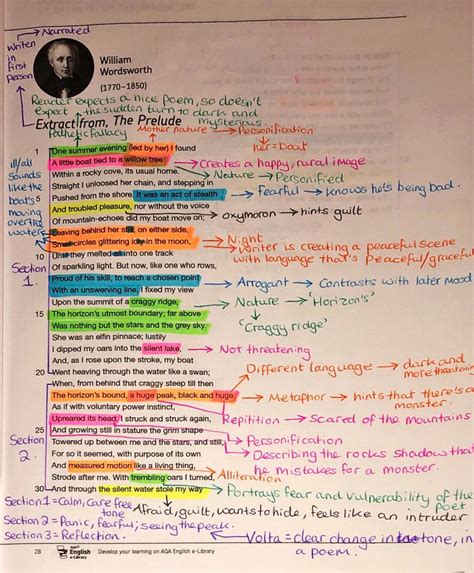 Narrated
Writen
in
first
person
William
Wordsworth
(1770–1850)
Reader expects a nice poem, so doesn't
expect the sudden turn to dark and
mysterious.
Extract from, The Prelude
Pathetic fallacy
Mother nature → Personification
her = boat
1 One summer evening (led by her) I found
A little boat tied to a willow tree
Creates a happy, rural image
Within a rocky cove, its usual home.
Nature → Personified
Straight I unloosed her chain, and stepping in
5 Pushed from the shore. It was an act of stealth
Fearful → knows he's being bad.
And troubled pleasure, nor without the voice
oxymoron → hints guilt
Of mountain-echoes did my boat move on;
ill/all
sounds
like the
boat's
moving
over the
water
Leaving behind her still, on either side,
Night
Small circles glittering idly in the moon,
Writer is creating a peaceful scene
with language that's peaceful/graceful
10 Until they melted all into one track
Of sparkling light. But now, like one who rows,
Section
1.
Proud of his skill, to reach a chosen point
Arrogant → Contrasts with later mood
With an unswerving line, I fixed my view
Upon the summit of a craggy ridge,
Nature → 'Horizon's'
'Craggy ridge'
15 The horizon's utmost boundary; far above
Was nothing but the stars and the grey sky.
She was an elfin pinnace; lustily
I dipped my oars into the silent lake,
Not threatening
And, as I rose upon the stroke, my boat
20 Went heaving through the water like a swan;
Different language → dark and
more threatening
When, from behind that craggy steep till then
The horizon's bound, a huge peak, black and huge,
Metaphor → hints that there's a
monster.
As if with voluntary power instinct,
Upreared its head. I struck and struck again,
Repitition → Scared of the mountains
25 And growing still in stature the grim shape
Personification
Section
2.
Towered up between me and the stars, and still,
Describing the rocks shadow that
he mistakes for a monster.
For so it seemed, with purpose of its own
And measured motion like a living thing,
Strode after me. With trembling oars I turned,
Alliteration
30 And through the silent water stole my way
Portrays fear and vulnerability of the
poet
Section 1 = Calm, care free
tone
Afraid, guilt, wants to hide, feels like an intruder
Section 2 = Panic, fearful, seeing the peak.
Section 3 = Reflection.
Volta = clear change in tone, in
a poem.
28
AQA
English
e-Library
Develop your learning on AQA English e-Library